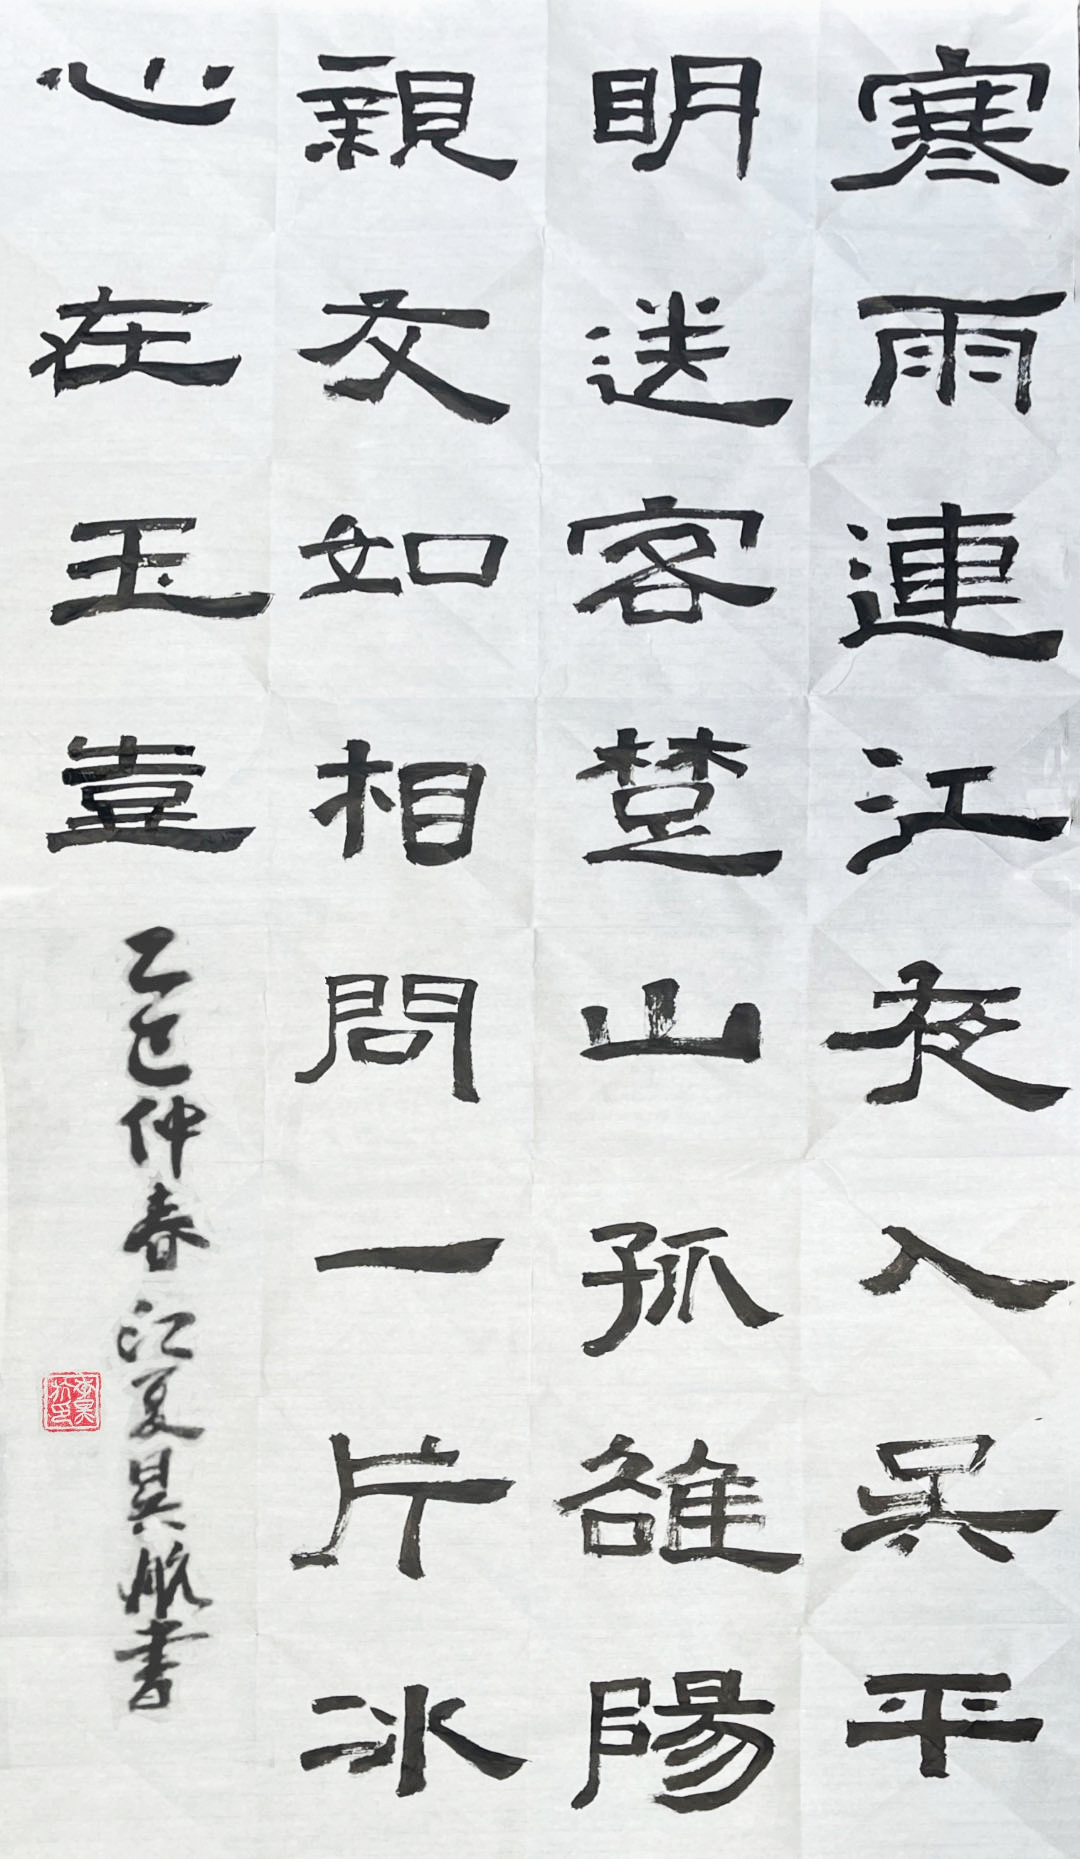 寒雨連江夜入吳平
明送客楚山孤雒陽
親友如相問一片冰
心在玉壺
乙巳仲春 江夏昊航書